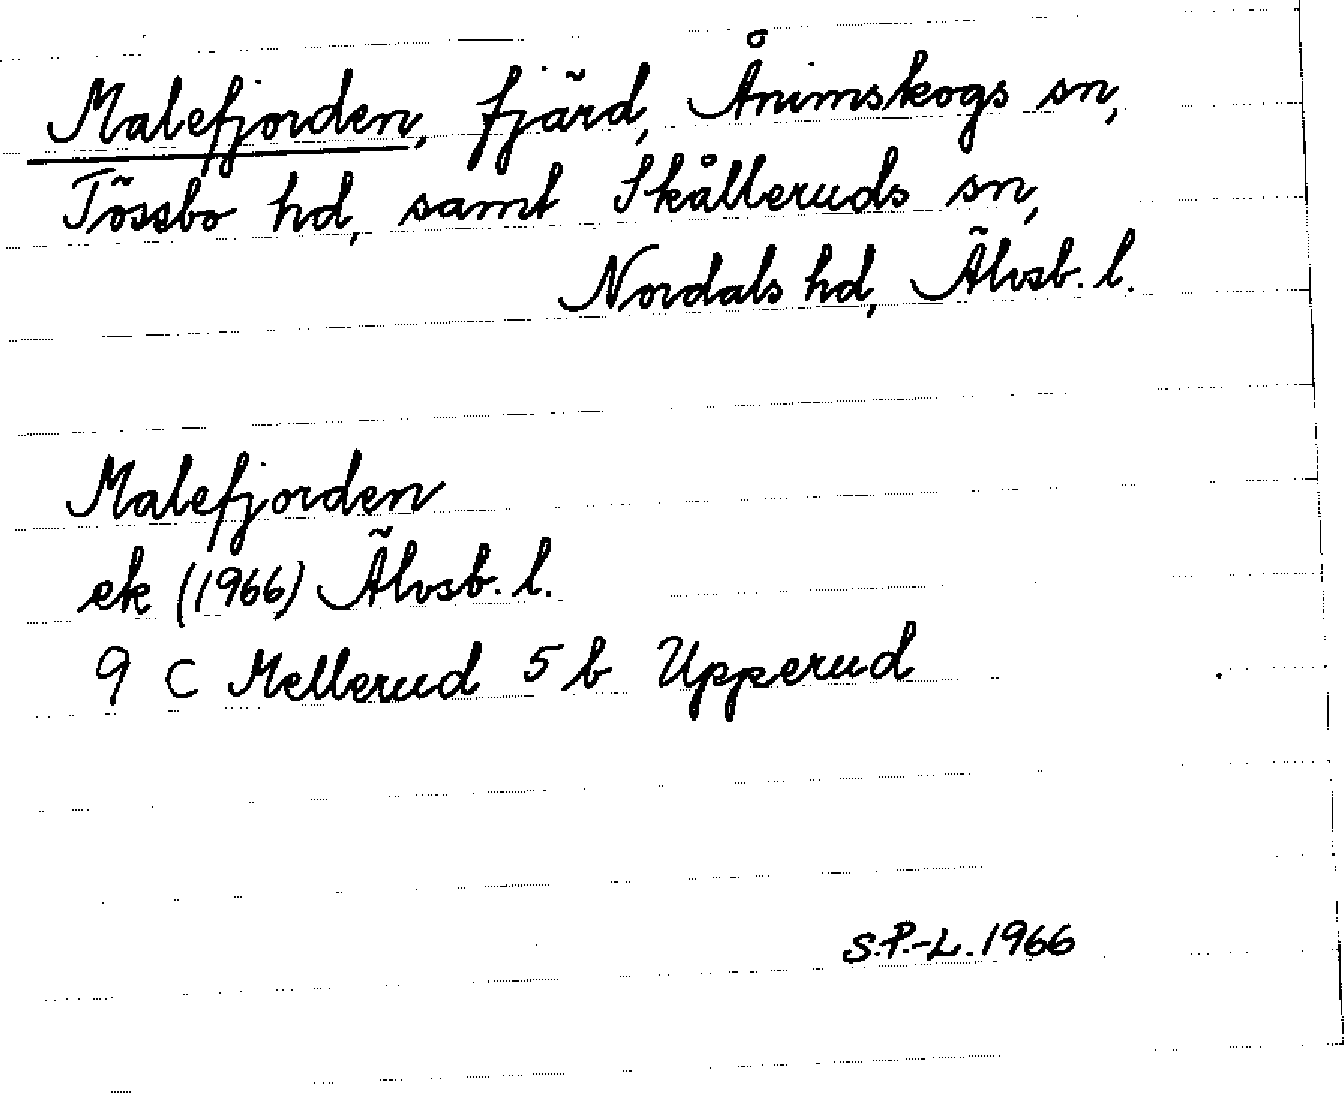 Malefjorden, fjärd, Ånimskogs sn,
Tössbo hd, samt Skålleruds sn,
Nordals hd, Älvsb. l.
Malefjorden
ek (1966) Älvsb. l.
9 C Mellerud 5 b Upperud
S.P.-L. 1966